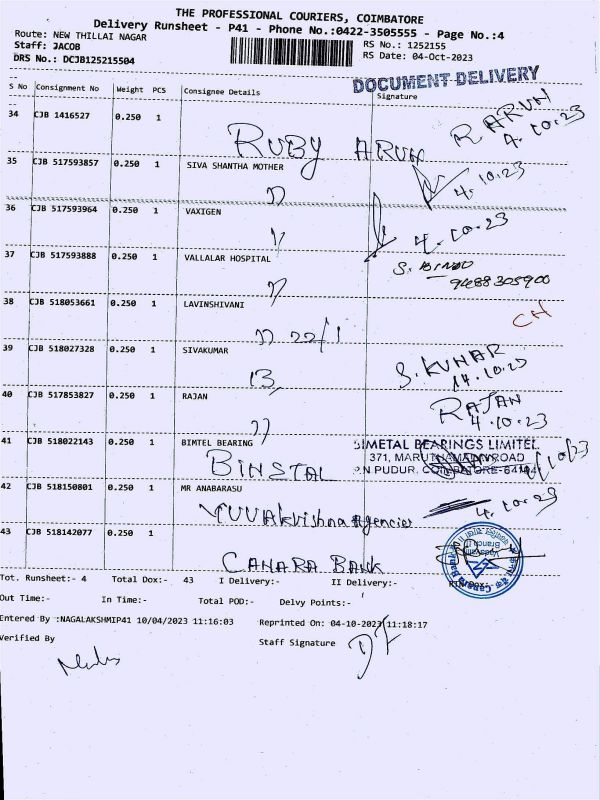 THE PROFESSIONAL COURIERS, COIMBATORE
Delivery Runsheet - P41 - Phone No.:0422-3505555 - Page No.:4
Route: NEW THILLAI NAGAR
RS No.: 1252155
Staff: JACOB
RS Date: 04-Oct-2023
DRS No.: DCJB125215504
DOCUMENT DELIVERY
S No Consignment No Weight PCS Consignee Details Signature
34 CJB 1416527 0.250 1
RUBY ARUN R ARUN 4.10.23
35 CJB 517593857 0.250 1 SIVA SHANTHA MOTHER
4.10.23
36 CJB 517593964 0.250 1 VAXIGEN
4.10.23
37 CJB 517593888 0.250 1 VALLALAR HOSPITAL
S. BINDO
9488305900
38 CJB 518053661 0.250 1 LAVINSHIVANI
22/1
CH
39 CJB 518027328 0.250 1 SIVAKUMAR
13,
S. KUMAR
40 CJB 517853827 0.250 1 RAJAN
RAJAN
4.10.23
41 CJB 518022143 0.250 1 BIMTEL BEARING
BIMETAL BEARINGS LIMITED
371, MARUTHAMALAI ROAD
P.N PUDUR, COIMBATORE-641041
BINSTAL
42 CJB 518150801 0.250 1 MR ANABARASU
YUVAkrishna Agencies
4.10.23
43 CJB 518142077 0.250 1
CANARA BANK
Tot. Runsheet:- 4 Total Dox:- 43 I Delivery:- II Delivery:-
Out Time:- In Time:- Total POD:- Delvy Points:-
Entered By :NAGALAKSHMIP41 10/04/2023 11:16:03 Reprinted On: 04-10-2023 11:18:17
Verified By
Staff Signature